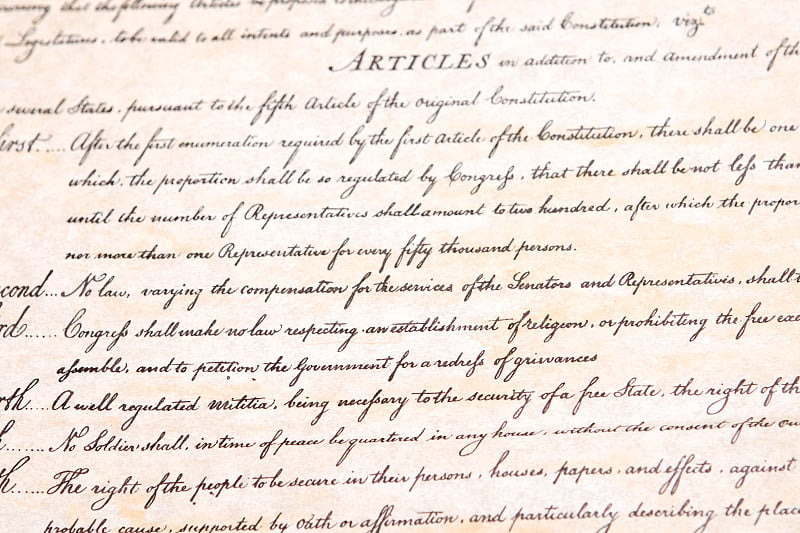 that the following Articles be proposed to
Legislatures, to be valid to all intents and purposes, as part of the said Constitution; vizt.
ARTICLES in addition to, and amendment of th
several States, pursuant to the fifth Article of the original Constitution.
irst.... After the first enumeration required by the first Article of the Constitution, there shall be one
which, the proportion shall be so regulated by Congreſs, that there shall be not leſs than
until the number of Representatives shall amount to two hundred, after which the propor
nor more than one Representative for every fifty thousand persons.
cond... No law, varying the compensation for the services of the Senators and Representatives, shall t
rd...... Congreſs shall make no law respecting an establishment of religion, or prohibiting the free exe
aſsemble, and to petition the Government for a redreſs of grievances
rth.... A well regulated Militia, being neceſsary to the security of a free State, the right of th
h....... No Soldier shall, in time of peace be quartered in any house, without the consent of the Ow
th...... The right of the people to be secure in their persons, houses, papers, and effects, against
probable cause, supported by Oath or affirmation, and particularly describing the place